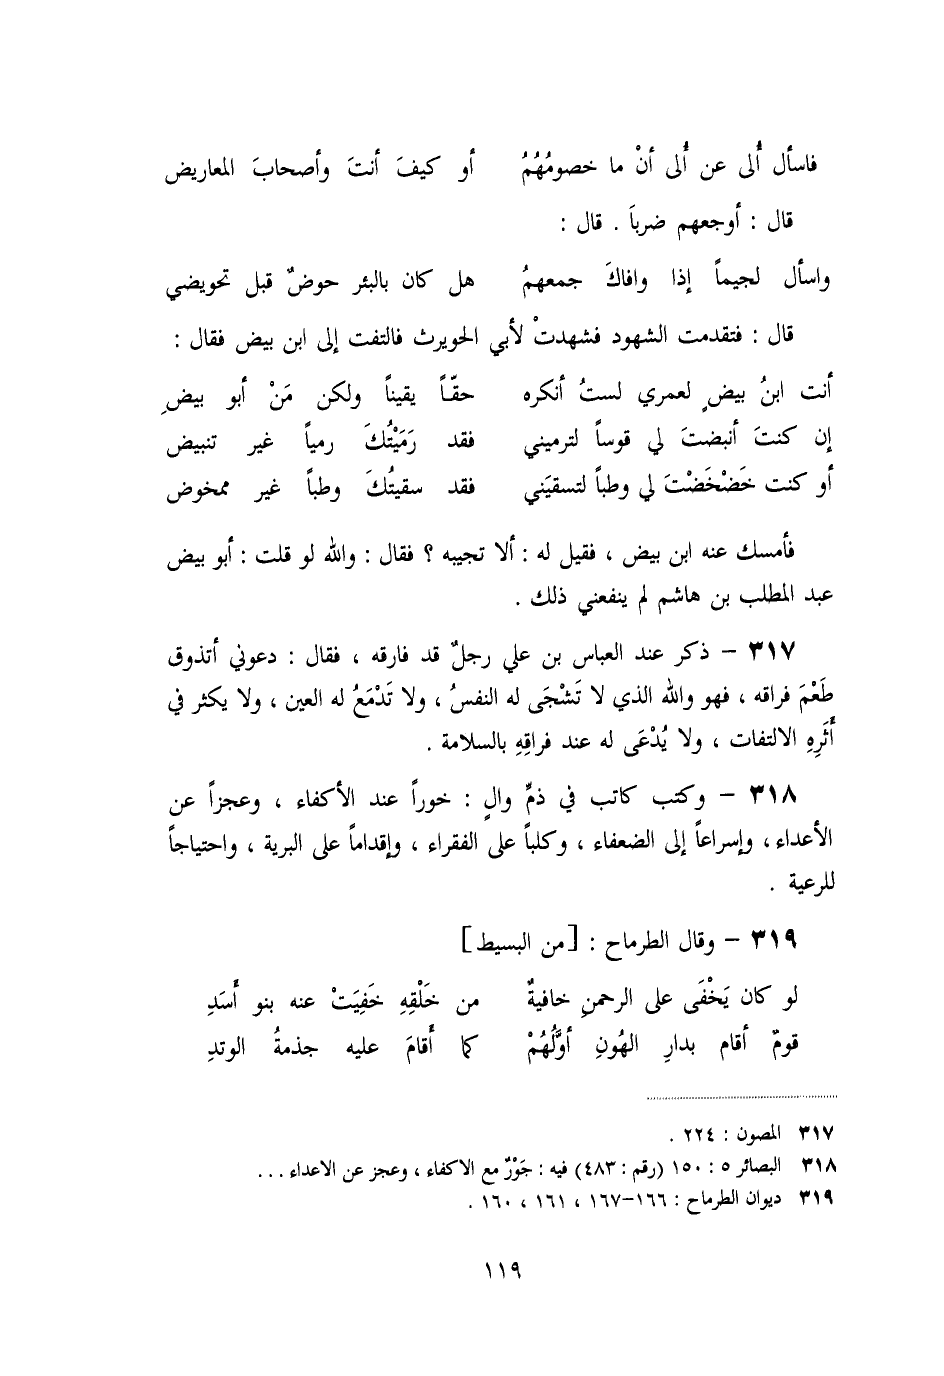 فاسأل أُلى عن أُلى أنْ ما خصومُهُمُ أو كيفَ أنتَ وأصحابَ المعاريض
قال : أوجعهم ضرباَ . قال :
واسأل لجيماً إذا وافاكَ جمعهمُ هل كان بالبئر حوضٌ قبل تحويضي
قال : فتقدمت الشهود فشهدتْ لأبي الحويرث فالتفت إلى ابن بيض فقال :
أنت ابنُ بيضٍ لعمري لستُ أنكره حقّاً يقيناً ولكن مَنْ أبو بيضِ
إن كنتَ أنبضتَ لي قوساً لترميني فقد رَمَيْتُكَ رمياً غير تنبيض
أو كنت خَضْخَضْتَ لي وطباً لتسقيَني فقد سقيتُكَ وطباً غير ممخوض
فأمسك عنه ابن بيض ، فقيل له : ألا تجيبه ؟ فقال : والله لو قلت : أبو بيض
عبد المطلب بن هاشم لم ينفعني ذلك .
٣١٧ – ذكر عند العباس بن علي رجلٌ قد فارقه ، فقال : دعوني أتذوق
طَعْمَ فراقه ، فهو والله الذي لا تَشْجَى له النفسُ ، ولا تَدْمَعُ له العين ، ولا يكثر في
أَثَرِهِ الالتفات ، ولا يُدْعَى له عند فراقِهِ بالسلامة .
٣١٨ – وكتب كاتب في ذمٌ والٍ : خوراً عند الأكفاء ، وعجزاً عن
الأعداء ، وإسراعاً إلى الضعفاء ، وكلباً على الفقراء ، وإقداماً على البرية ، واحتياجاً
للرعية .
٣١٩ – وقال الطرماح : [من البسيط]
لو كان يَخْفَى على الرحمنِ خافيةٌ من خَلْقِهِ خَفِيَتْ عنه بنو أَسَدِ
قومٌ أقام بدارِ الهُونِ أوَّلُهُمْ كما أَقامَ عليه جذمةُ الوتدِ
٣١٧ المصون : ٢٢٤ .
٣١٨ البصائر ٥ : ١٥٠ (رقم : ٤٨٣) فيه : جَوْرٌ مع الاكفاء ، وعجز عن الاعداء ...
٣١٩ ديوان الطرماح : ١٦٦–١٦٧ ، ١٦١ ، ١٦٠ .
١١٩